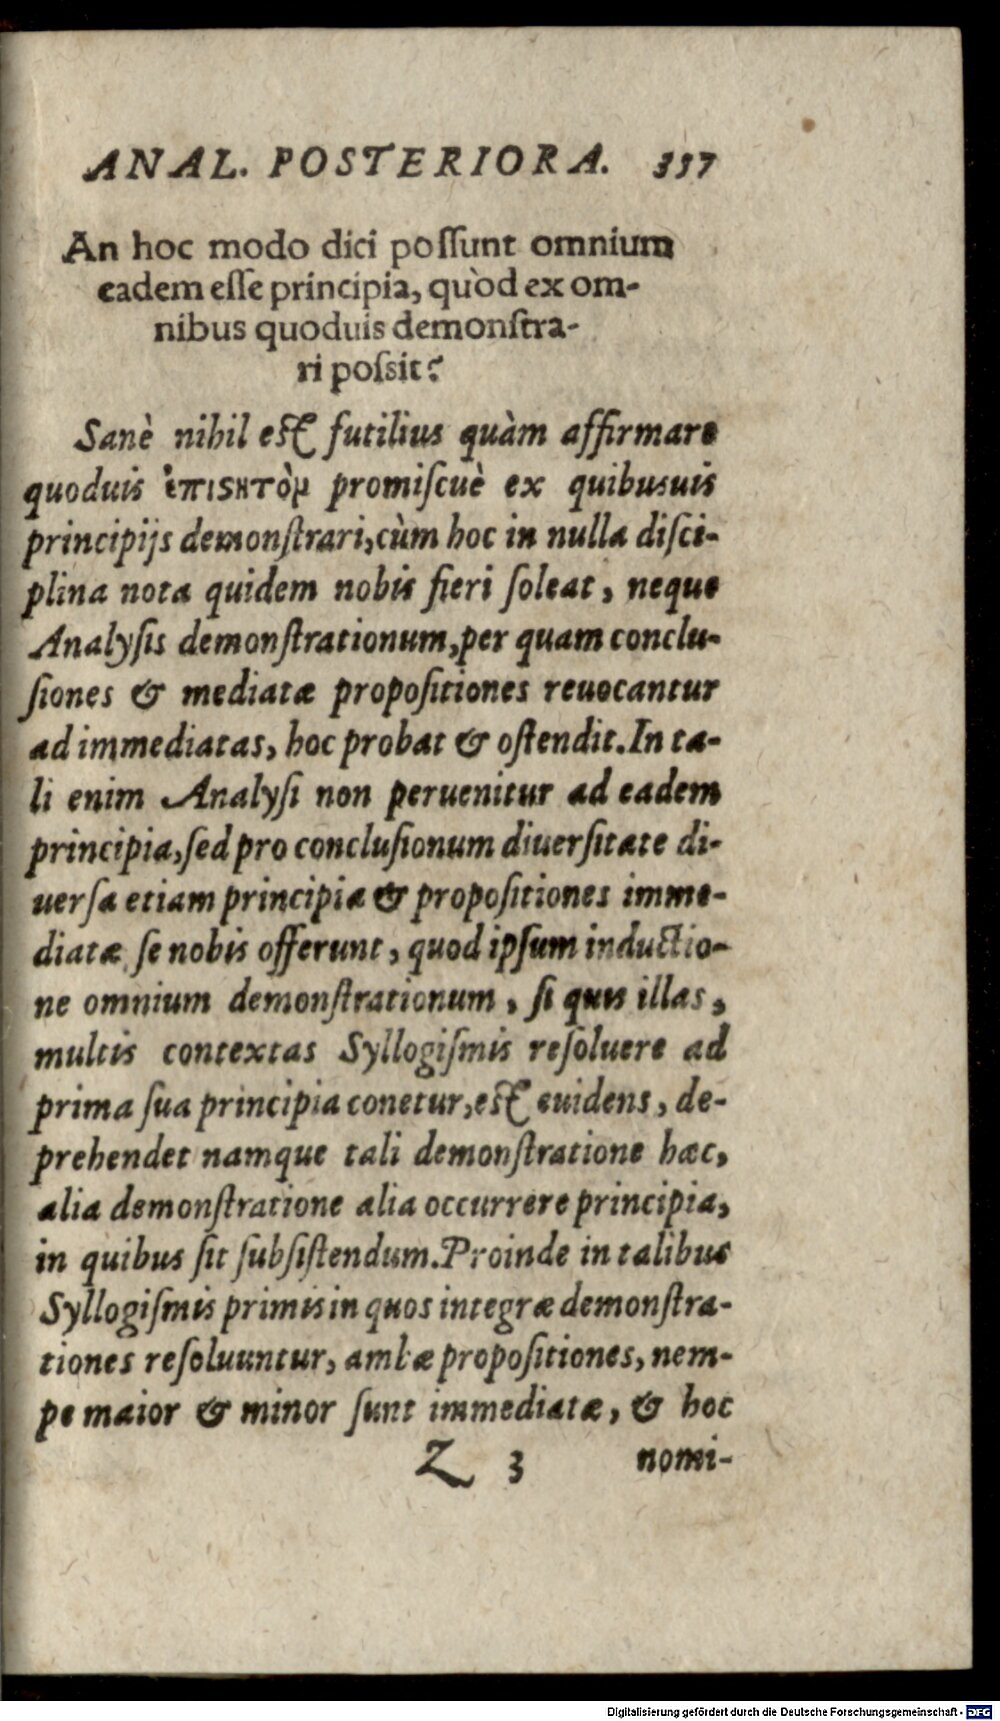 ANAL. POSTERIORA. 357
An hoc modo dici poſſunt omnium
eadem eſſe principia, quòd ex om-
nibus quoduis demonſtra-
ri poſsit?
Sanè nihil eſt futilius quàm affirmare
quoduis ἐπιςητὸμ promiſcuè ex quibusuis
principijs demonſtrari, cùm hoc in nulla diſci-
plina nota quidem nobis fieri ſoleat, neque
Analyſis demonſtrationum, per quam conclu-
ſiones & mediatæ propoſitiones reuocantur
ad immediatas, hoc probat & oſtendit. In ta-
li enim Analyſi non peruenitur ad eadem
principia, ſed pro concluſionum diuerſitate di-
uerſa etiam principia & propoſitiones imme-
diatæ ſe nobis offerunt, quod ipſum inductio-
ne omnium demonſtrationum, ſi quis illas,
multis contextas Syllogiſmis reſoluere ad
prima ſua principia conetur, eſt euidens, de-
prehendet namque tali demonſtratione hæc,
alia demonſtratione alia occurrere principia,
in quibus ſit ſubſiſtendum. Proinde in talibus
Syllogiſmis primis in quos integræ demonſtra-
tiones reſoluuntur, ambæ propoſitiones, nem-
pe maior & minor ſunt immediatæ, & hoc
Z 3 nomi-
Digitalisierung gefördert durch die Deutsche Forschungsgemeinschaft - DFG